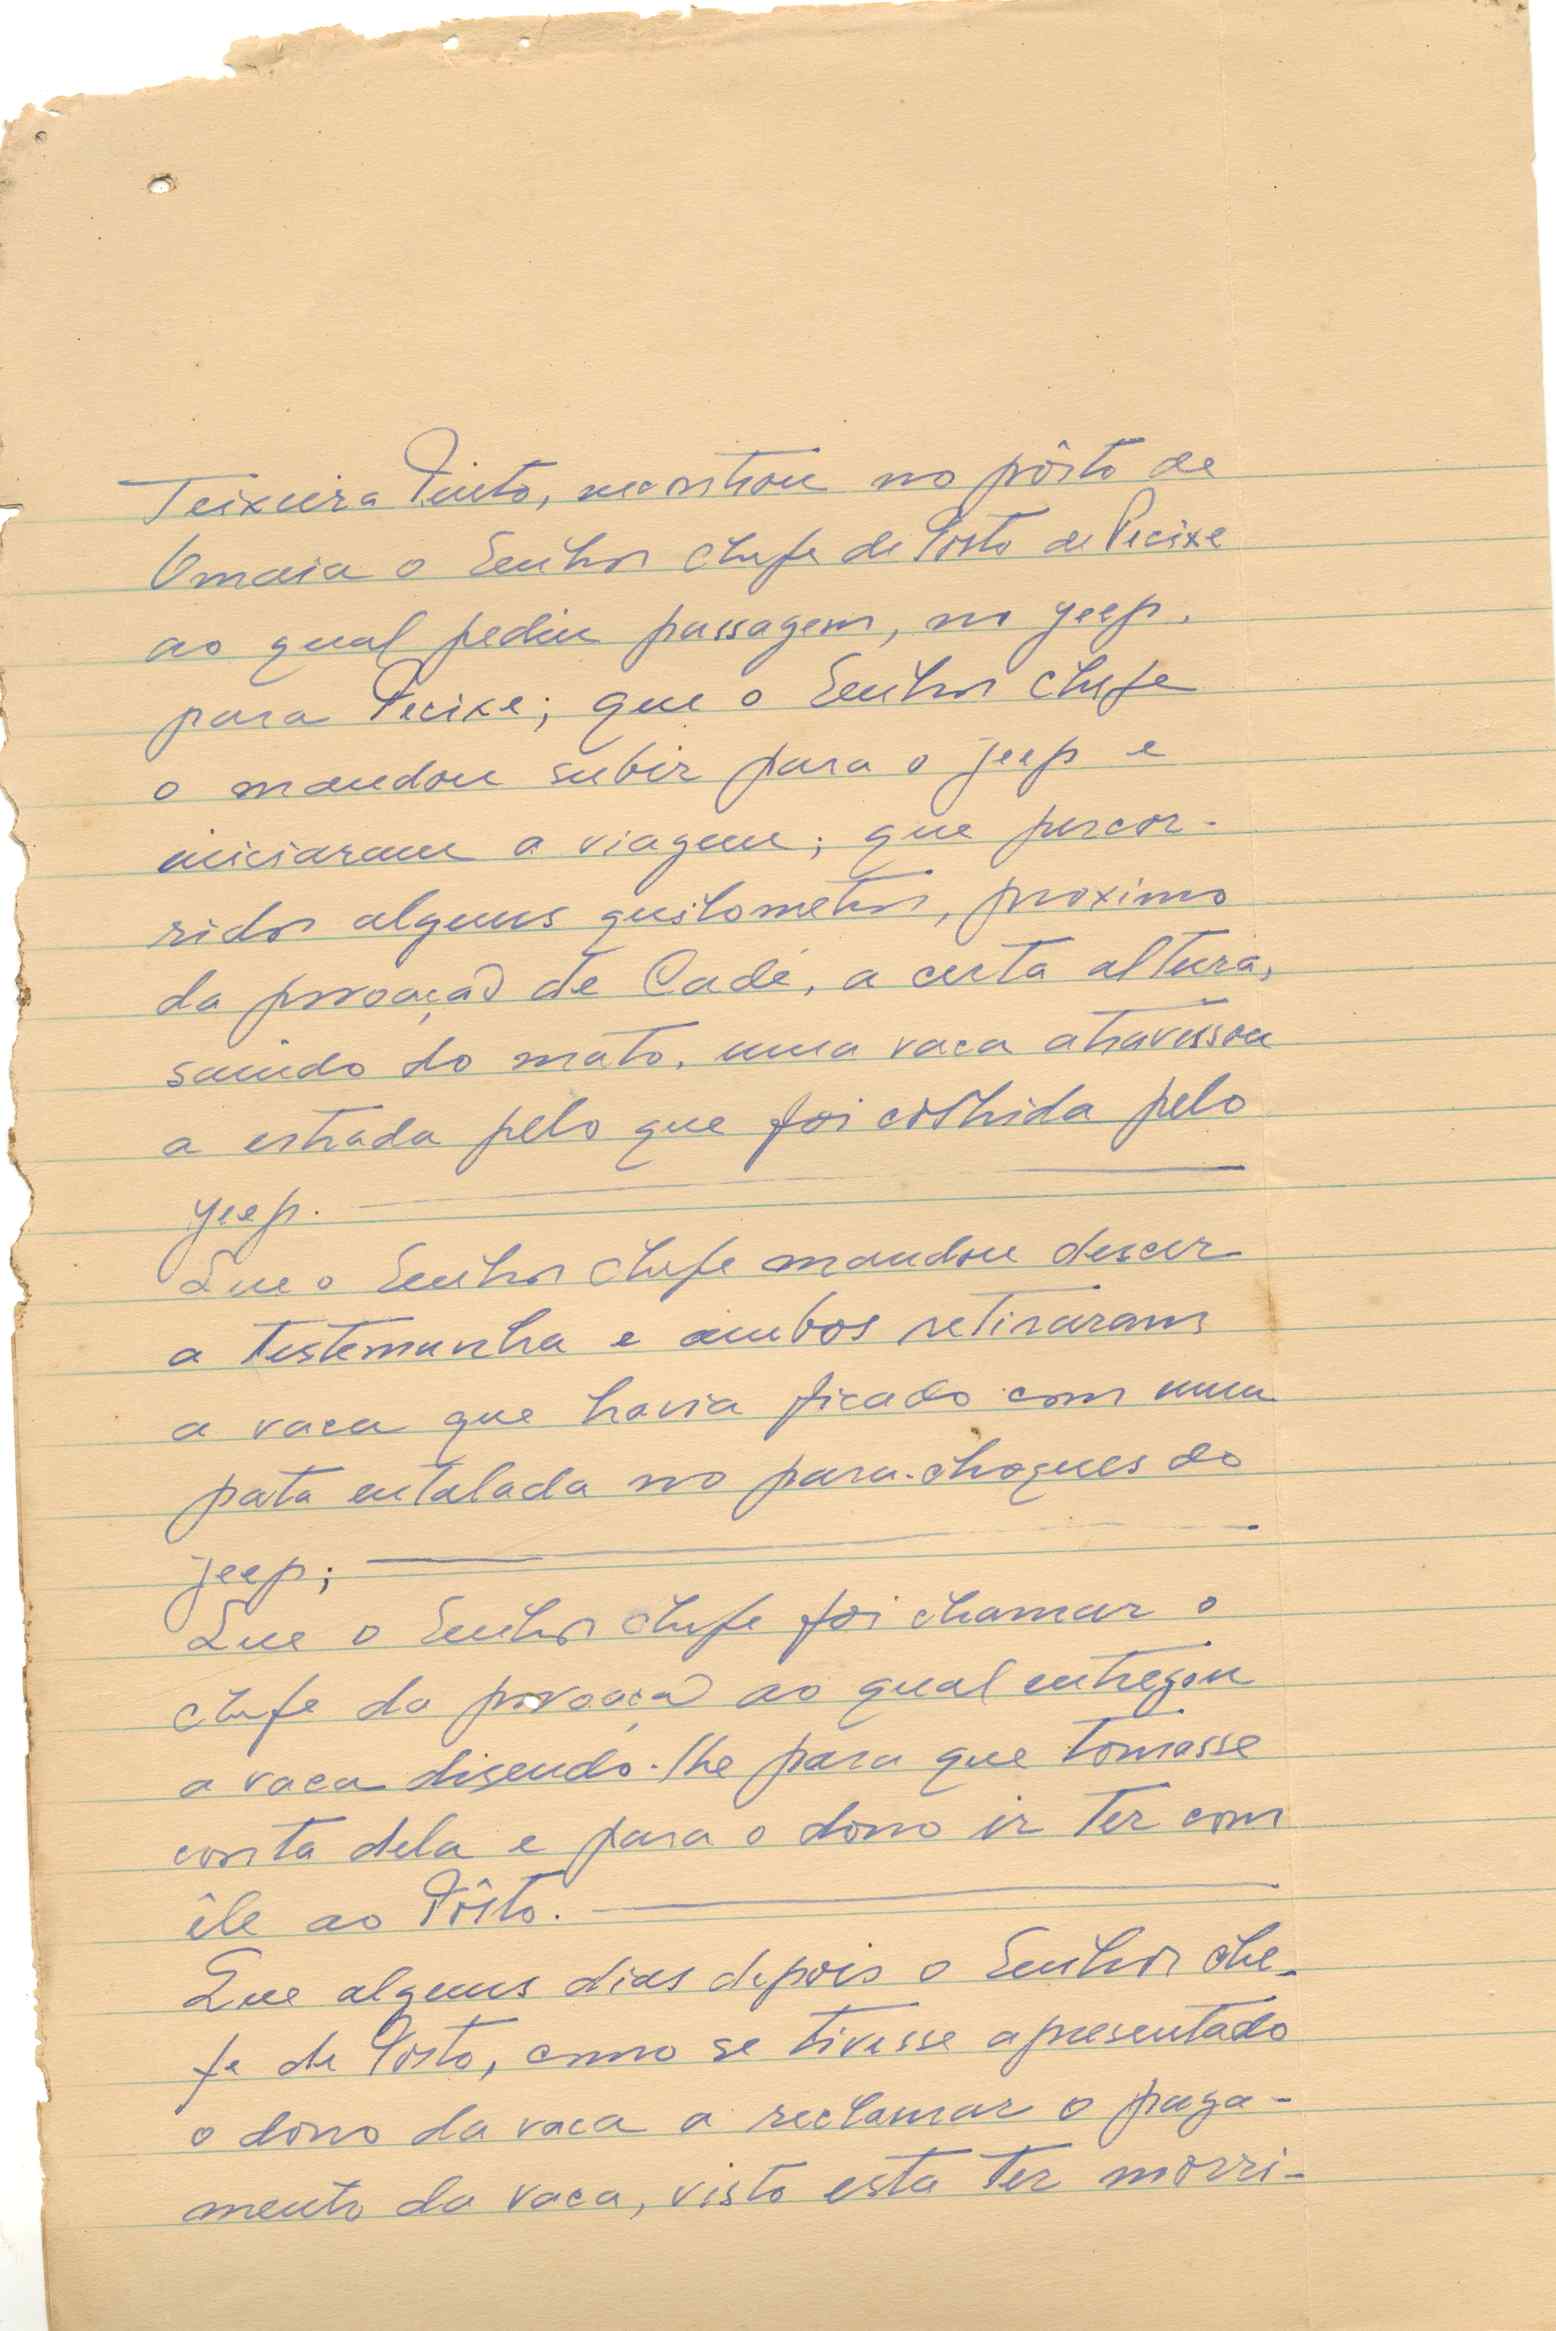 Teixeira Pinto, encontrou no pôrto de
Omaia o Senhor Chefe de Posto de Pecixe
ao qual pediu passagem, no yeep,
para Pecixe; que o Senhor Chefe
o mandou subir para o jeep e
iniciaram a viagem; que percor-
ridos alguns quilometros, proximo
da provoação de Cadé, a certa altura,
saindo do mato, uma vaca atravessou
a estrada pelo que foi colhida pelo
yeep.
Que o Senhor Chefe mandou descer
a testemunha e ambos retiraram
a vaca que havia ficado com uma
pata entalada no para-choques do
jeep;
Que o Senhor Chefe foi chamar o
chefe da povoaçã ao qual entregou
a vaca disendo-lhe para que tomasse
conta dela e para o dono ir ter com
êle ao Pôsto.
Que alguns dias depois o Senhor Che-
fe de Posto, como se tivesse apresentado
o dono da vaca a reclamar o paga-
mento da vaca, visto esta ter morri-